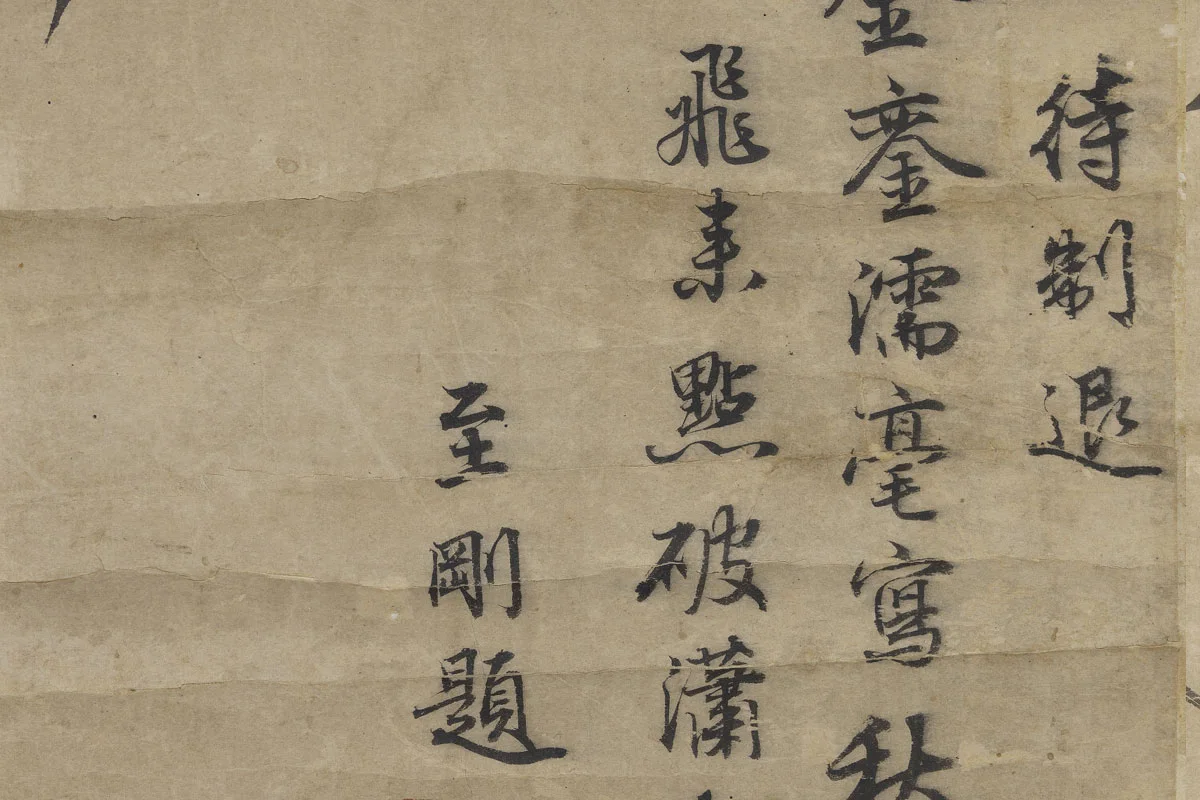 待制退
金鑾濡毫寫秋
飛来點破瀟
至剛題